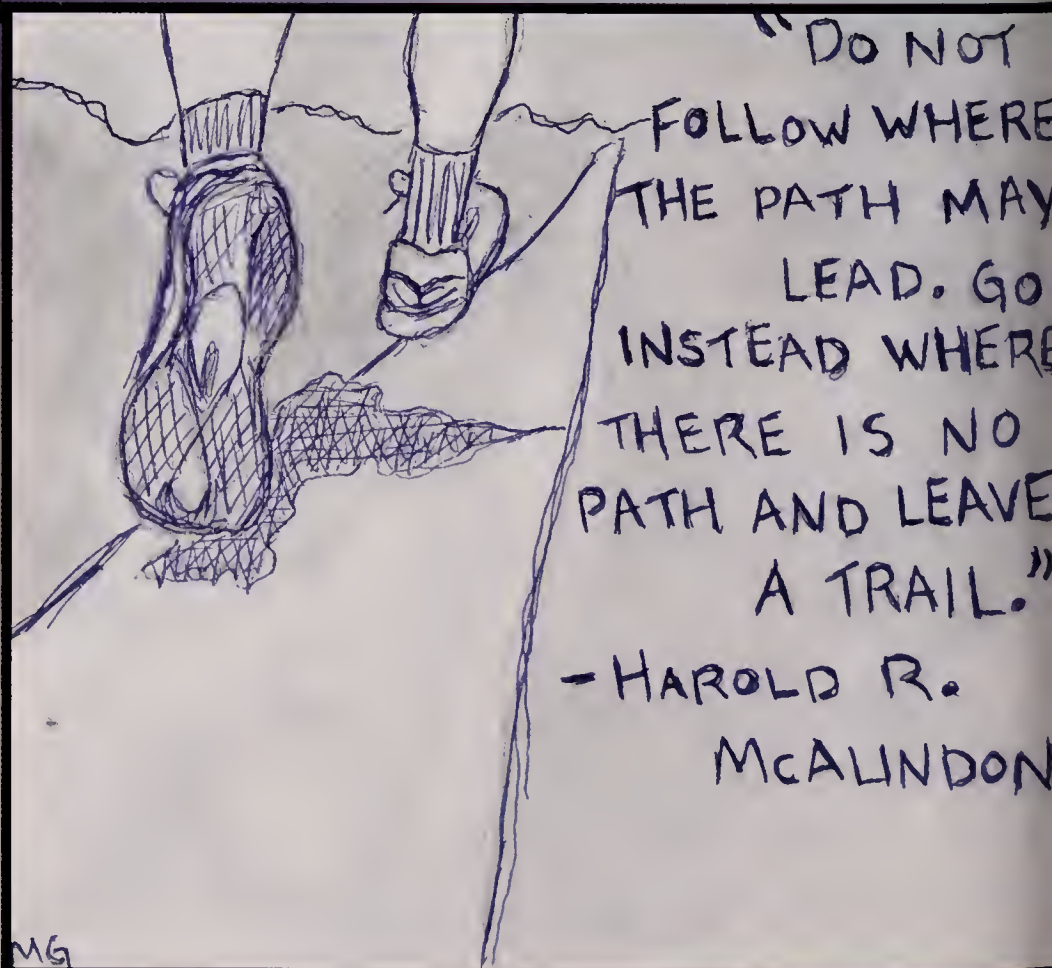 "DO NOT
FOLLOW WHERE
THE PATH MAY
LEAD. GO
INSTEAD WHERE
THERE IS NO
PATH AND LEAVE
A TRAIL."
-HAROLD R.
McALINDON
MG